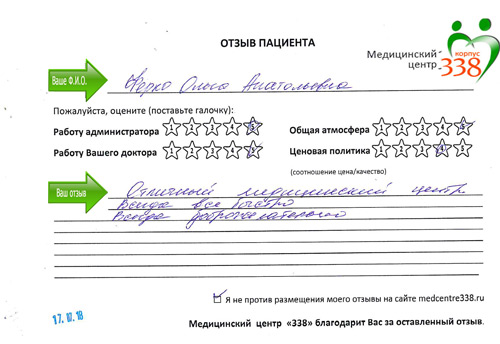 ОТЗЫВ ПАЦИЕНТА
Медицинский центр корпус 338
Ваше Ф.И.О. Ольга Анатольевна
Пожалуйста, оцените (поставьте галочку):
Работу администратора 1 2 3 4 5 Общая атмосфера 1 2 3 4 5
Работу Вашего доктора 1 2 3 4 5 Ценовая политика 1 2 3 4 5
(соотношение цена/качество)
Ваш отзыв Отличный медицинский центр
Всегда все быстро
Всегда доброжелательно
Я не против размещения моего отзывы на сайте medcentre338.ru
17.07.18
Медицинский центр «338» благодарит Вас за оставленный отзыв.